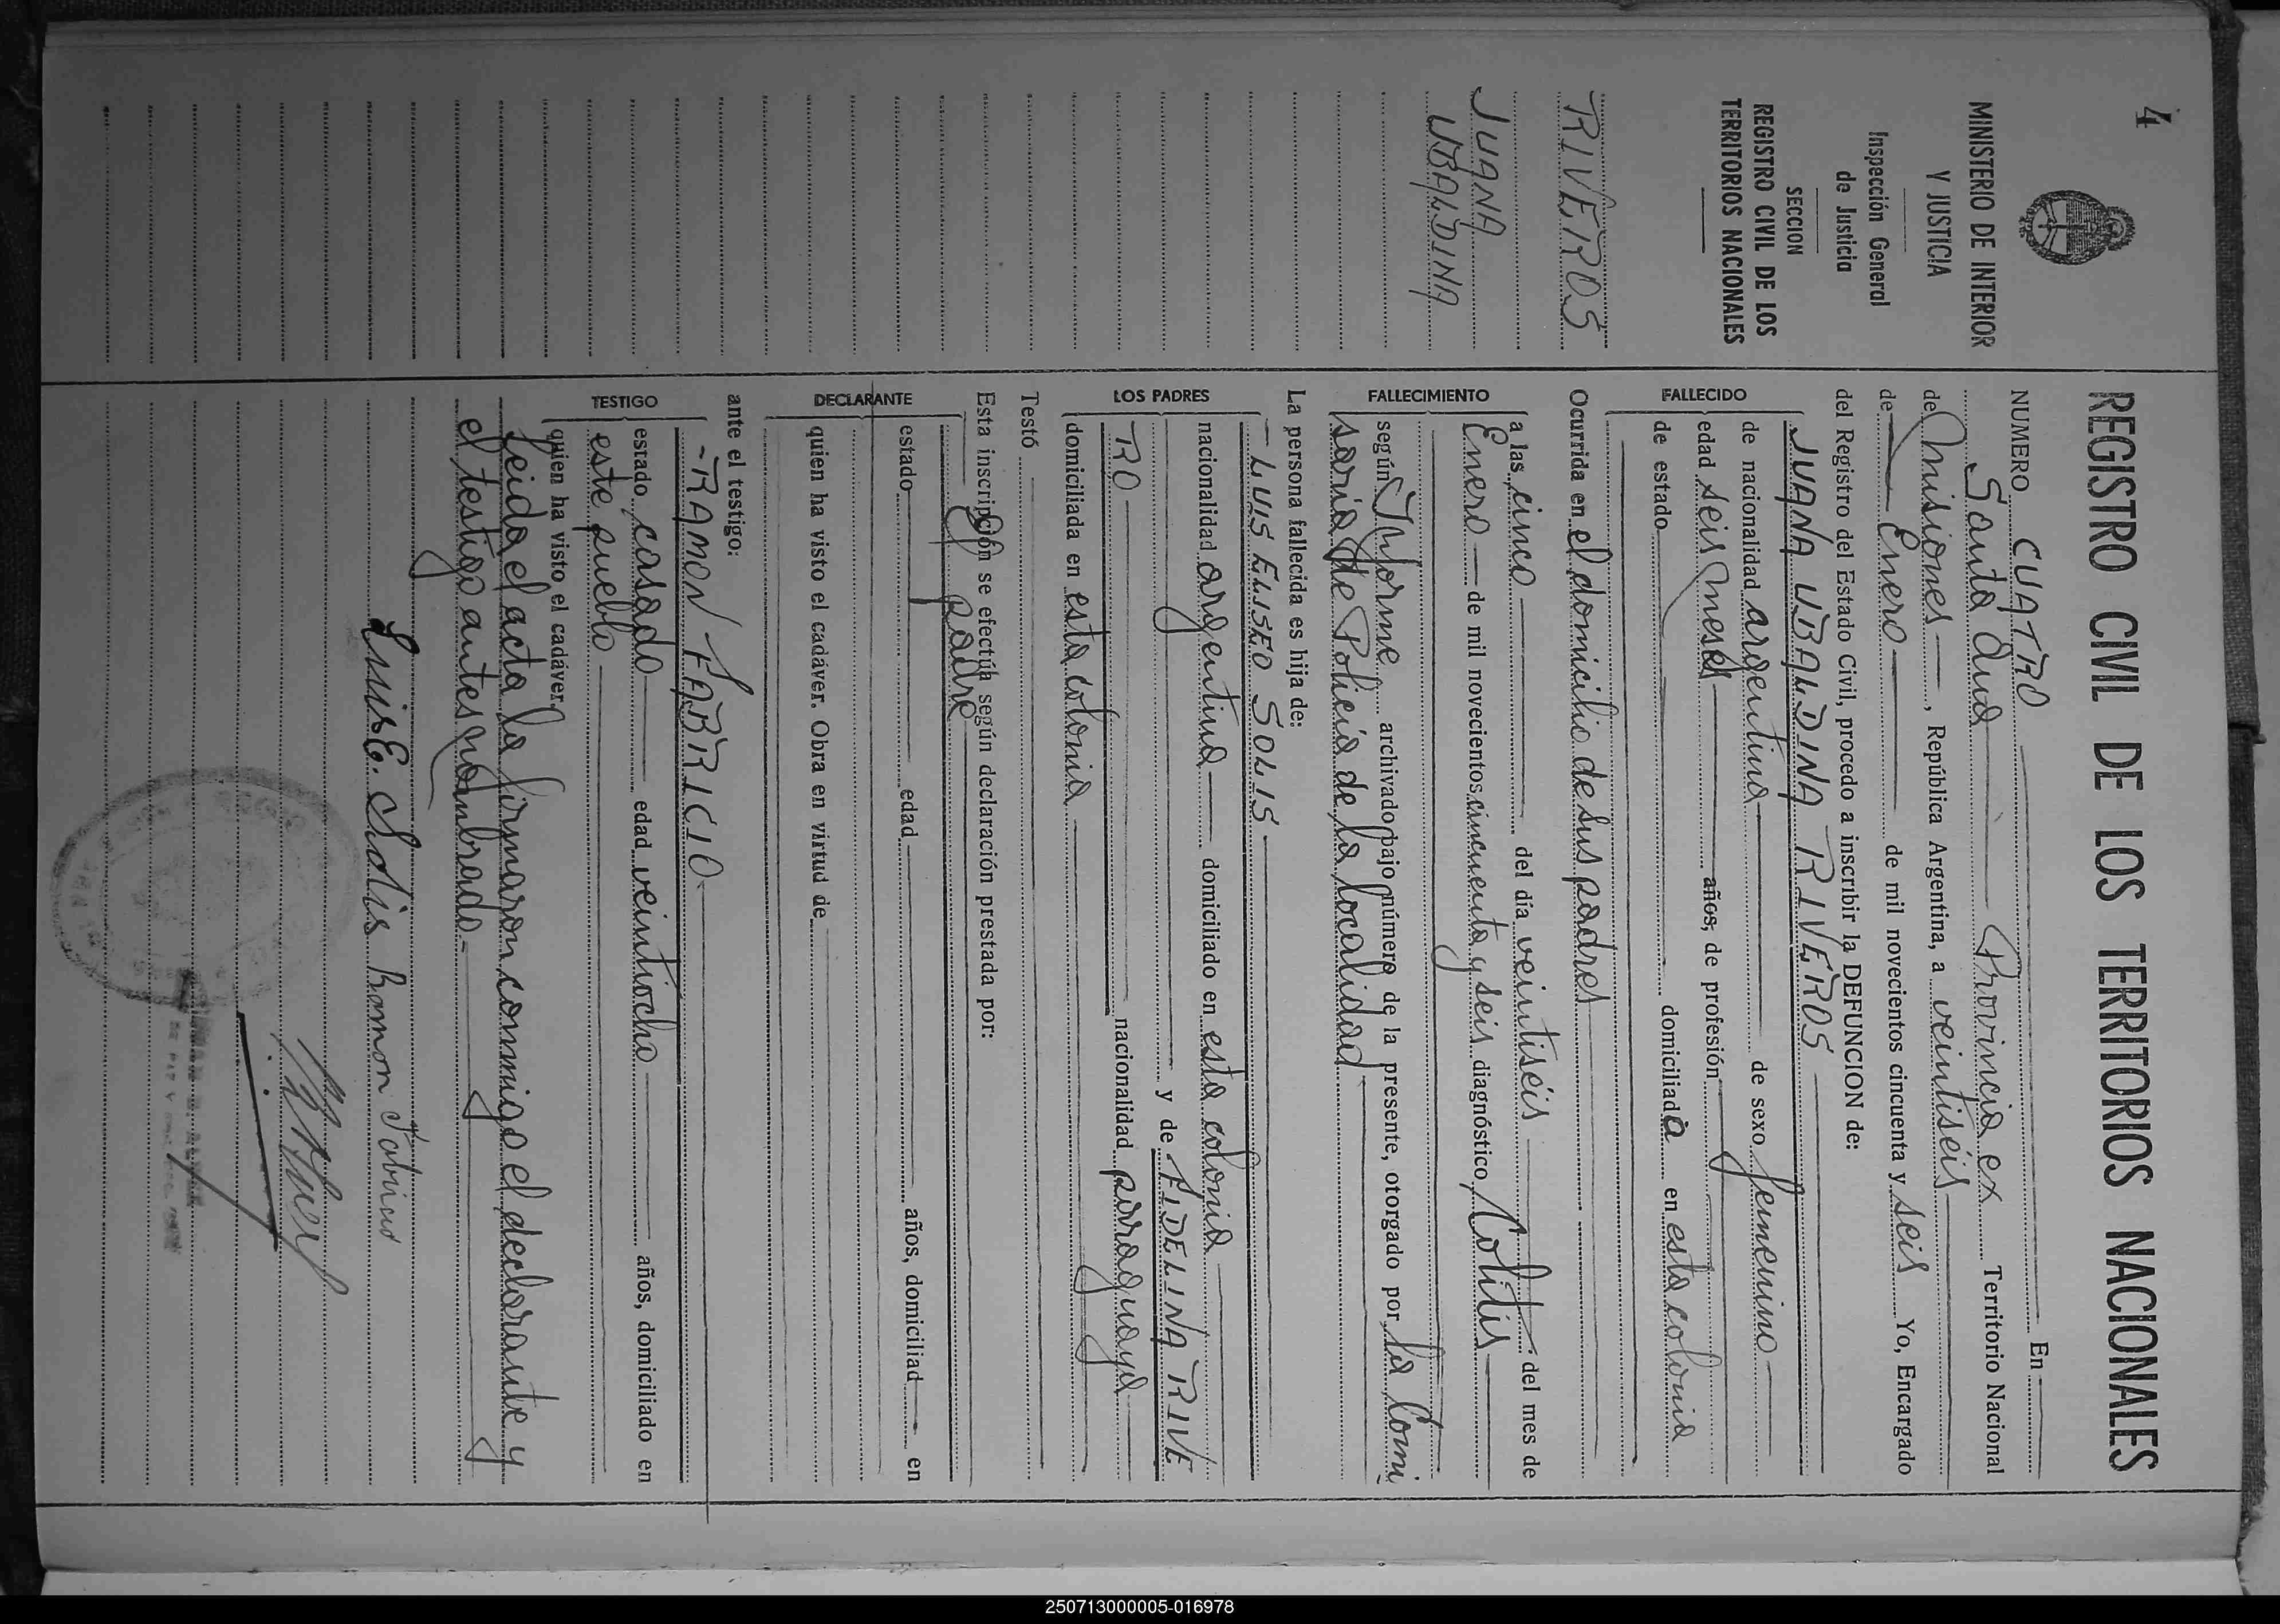 4
MINISTERIO DE INTERIOR
Y JUSTICIA
Inspección General
de Justicia
SECCION
REGISTRO CIVIL DE LOS
TERRITORIOS NACIONALES
RIVEROS
JUANA
UBALDINA
REGISTRO CIVIL DE LOS TERRITORIOS NACIONALES
NUMERO CUATRO En
Santa Ana Provincia ex Territorio Nacional
de Misiones, República Argentina, a veintiséis
de Enero de mil novecientos cincuenta y seis Yo, Encargado
del Registro del Estado Civil, procedo a inscribir la DEFUNCION de:
FALLECIDO
JUANA UBALDINA RIVEROS
de nacionalidad argentina de sexo femenino
edad seis meses años, de profesión
de estado domiciliada en esta colonia
Ocurrida en el domicilio de sus padres
FALLECIMIENTO
a las cinco del día veintiséis del mes de
Enero de mil novecientos cincuenta y seis diagnóstico Colitis
según Informe archivado bajo número de la presente, otorgado por la Comi
saria de Policia de la localidad
La persona fallecida es hija de:
LOS PADRES
-LUIS ELISEO SOLIS-
nacionalidad argentina domiciliado en esta colonia
y de FIDELINA RIVE
RO nacionalidad paraguaya
domiciliada en esta colonia
Testó
Esta inscripción se efectúa según declaración prestada por:
DECLARANTE
El padre
estado edad años, domiciliad en
quien ha visto el cadáver. Obra en virtud de
ante el testigo:
TESTIGO
-RAMON FABRICIO-
estado casado edad veintiocho años, domiciliado en
este pueblo
quien ha visto el cadáver.
Leida el acta la firmaron conmigo el declarante y
el testigo antes nombrado.-
Luis E. Solis Ramon Fabricio
250713000005-016978